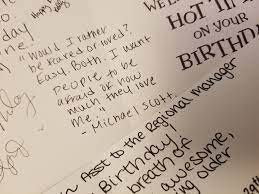 WEL
HOT 'N'
ON YOUR
BIRTHD
day!
"Would I rather
be feared or loved?
Easy. Both. I want
people to be
afraid of how
much they love
me."
- Michael Scott.
Asst to the Regional manager
Birthday!
breath of
awesome,
ing older